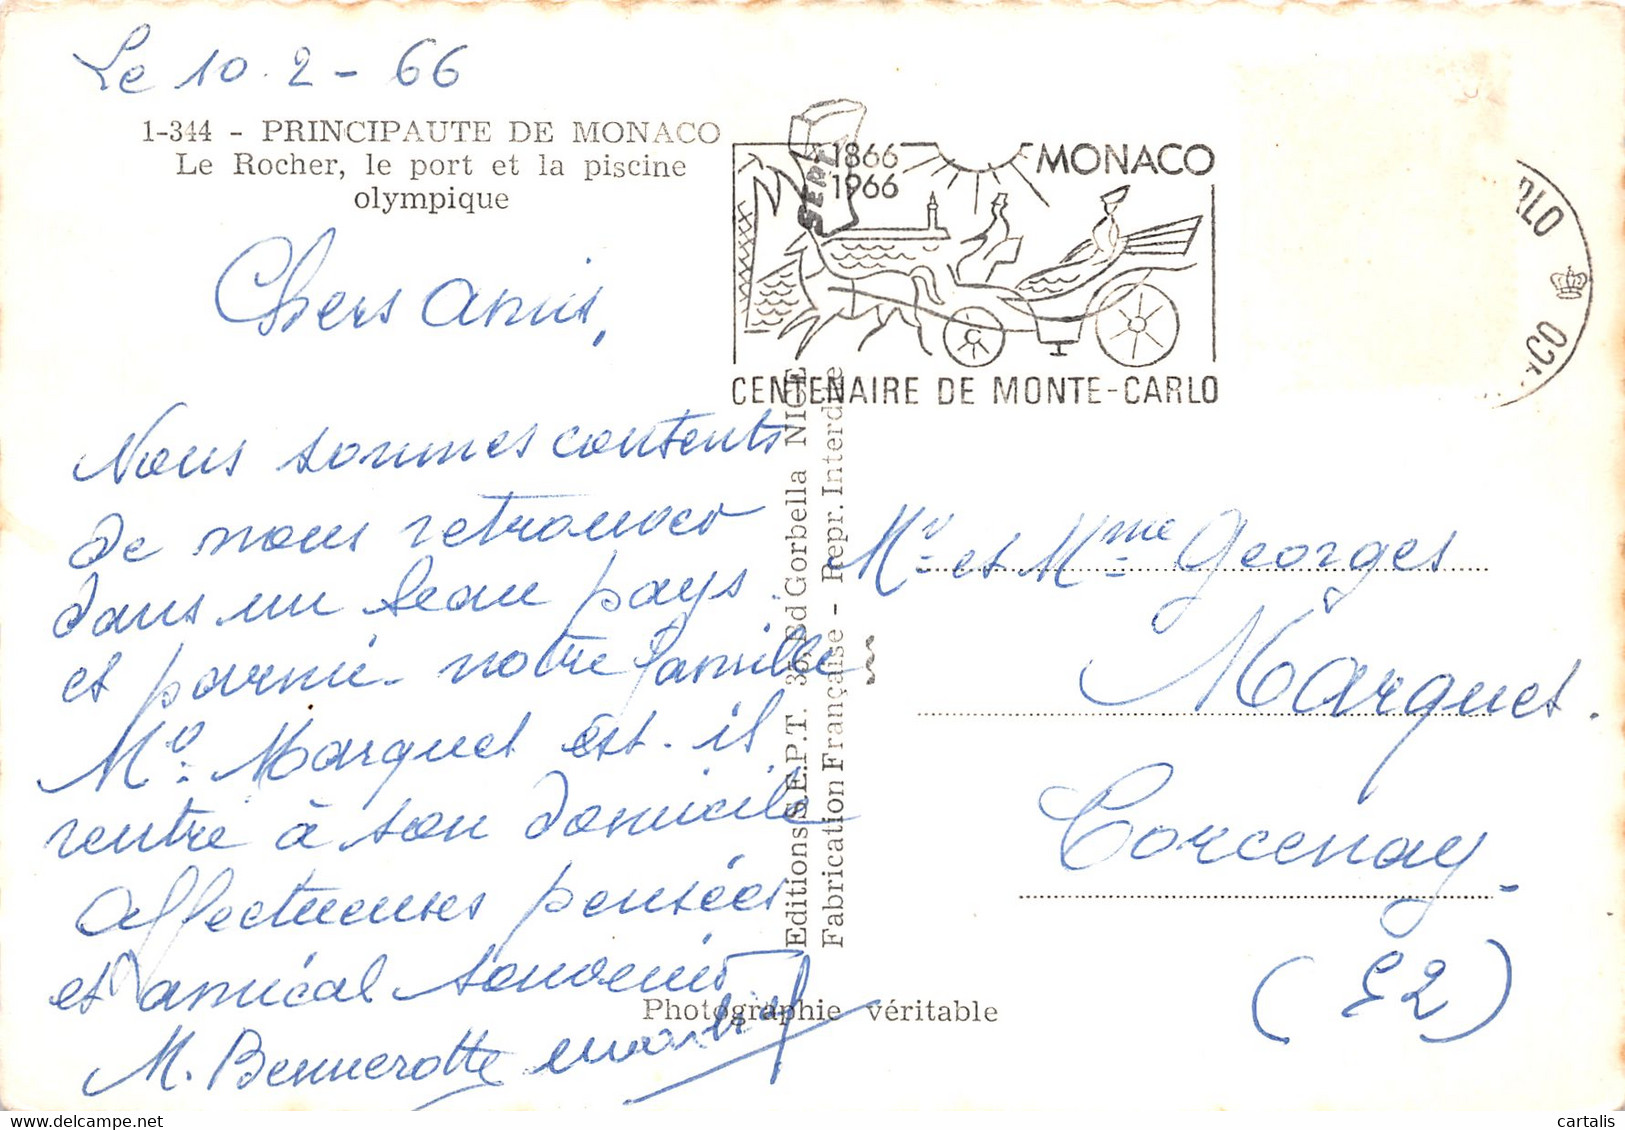 Le 10.2-66
1-344 - PRINCIPAUTE DE MONACO
Le Rocher, le port et la piscine
olympique
Chers Amis,
Nous sommes contents
de nous retrouver
dans un beau pays.
et parmi notre famille
Mr Marquet est-il
rentré à son domicile
Affectueuses pensées
et amical souvenir
M.
1866
1966
MONACO
CENTENAIRE DE MONTE-CARLO
SEPT
Editions S.E.P.T. 35, Bd Gorbella NICE
Fabrication Française - Repr. Interdite
Photographie véritable
Mr et Mme Georges
Marquet.
Corcenay-
cartalis